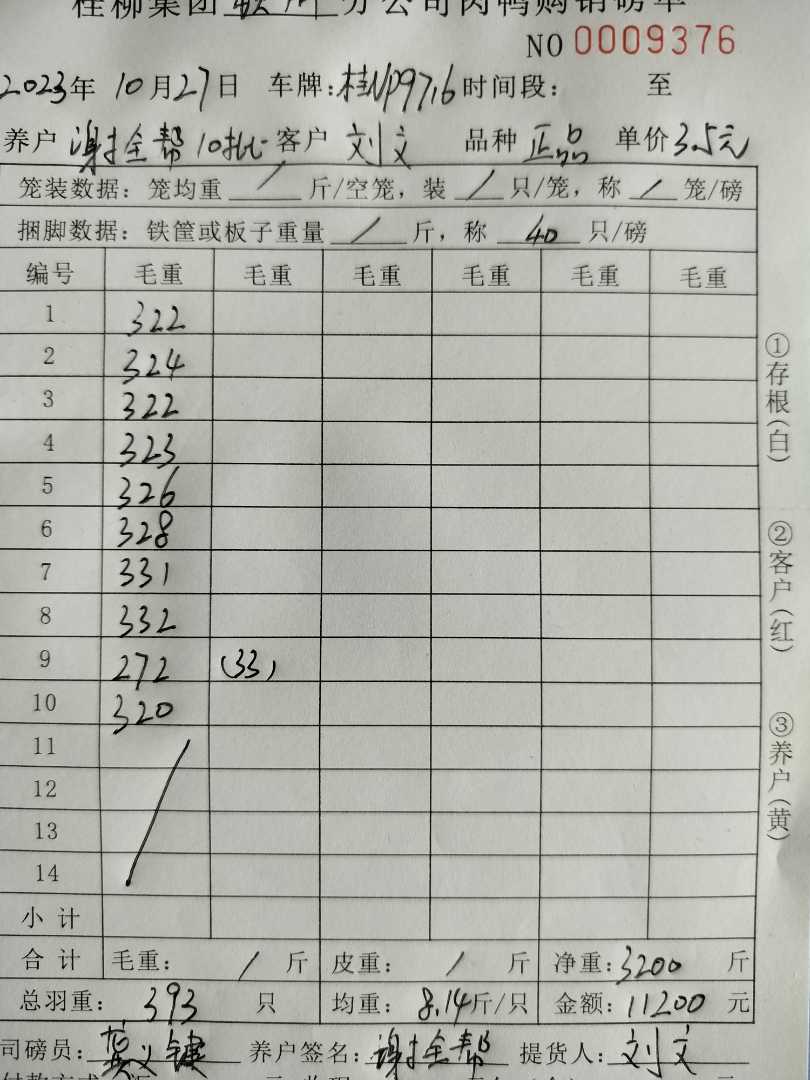 桂柳集团 分公司肉鸭购销磅单
NO 0009376
2023年 10月27日 车牌:桂NP9716 时间段: 至
养户 谢全帮 10批 客户 刘文 品种 正品 单价 3.5元
笼装数据: 笼均重 / 斤/空笼, 装 / 只/笼, 称 / 笼/磅
捆脚数据: 铁筐或板子重量 / 斤, 称 40 只/磅
编号 毛重 毛重 毛重 毛重 毛重 毛重
1 322
2 324
3 322
4 323
5 326
6 328
7 331
8 332
9 272 (33)
10 320
11
12
13
14
小计
合计 毛重: / 斤 皮重: / 斤 净重: 3200 斤
总羽重: 393 只 均重: 8.14斤/只 金额: 11200 元
司磅员: 养户签名: 谢全帮 提货人: 刘文
①存根(白)
②客户(红)
③养户(黄)